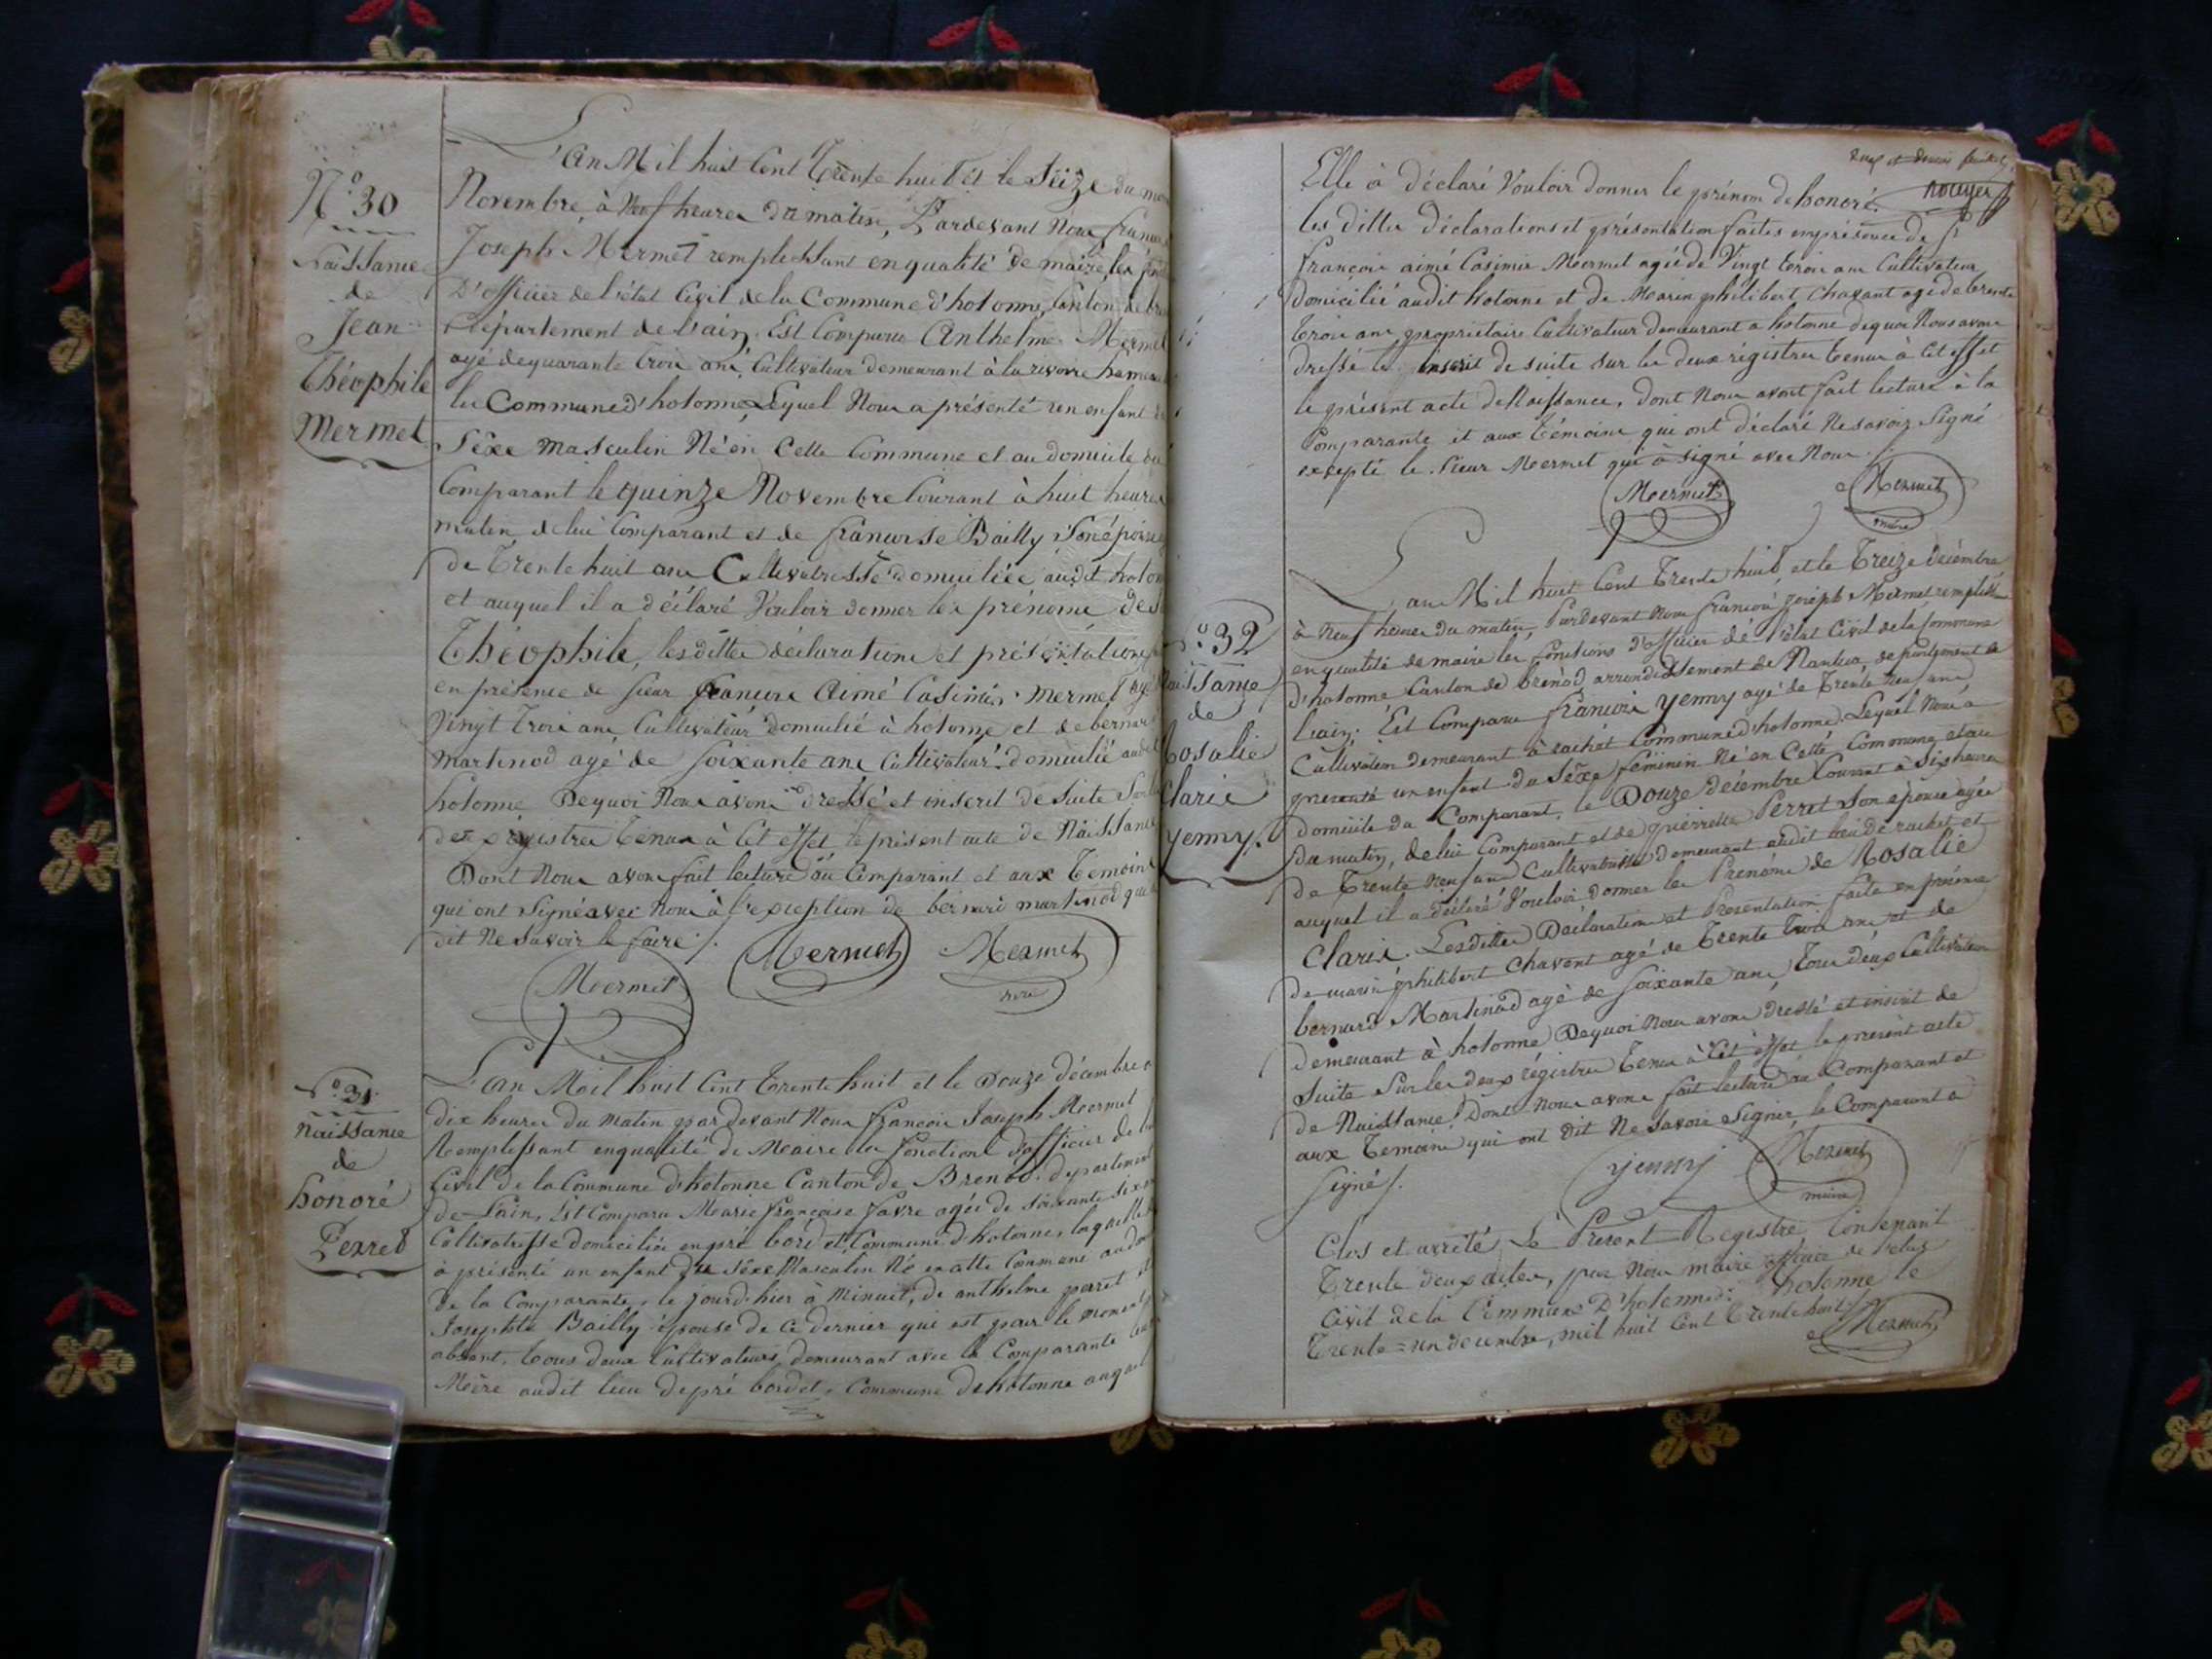 N° 30
Naissance
de
Jean
Théophile
Mermet
L'an Mil huit Cent Trente huit et le Seize du mois
Novembre, à Neuf heures du matin, Pardevant Nous françois
Joseph Mermet remplissant en qualité de maire, les
D'officier de l'état Civil de la Commune d'hotonne, Canton de
Département de l'ain, Est Comparu Anthelme Mermet
agé de quarante trois ans, Cultivateur demeurant à la rivoire hameau
la Commune d'hotonne, Lequel Nous a présenté un enfant
Sexe Masculin Né en Cette Commune et au domicile du
Comparant le quinze Novembre Courant à huit heures
matin, de lui Comparant et de françoise Bailly Son épouse
de Trente huit ans Cultivatresse domiciliée audit hotonne
et auquel il a déclaré Vouloir donner les prénoms de
Théophile, lesdittes déclarations et présentations
en présence de Sieur françois Aimé Casimir Mermet agé
Vingt trois ans Cultivateur domicilié à hotonne et de bernard
Martinod agé de Soixante ans Cultivateur domicilié audit
hotonne Dequoi Nous avons dressé et inscrit de Suite Sur
registres tenus à Cet effet le présent acte de Naissance
Dont Nous avons fait lecture au Comparant et aux Témoins
qui ont Signé avec Nous à l'exception de bernard martinod qui
dit Ne Savoir le faire ./.
Mermet Mermet
Mermet
N° 31
Naissance
de
honoré
Perret
L'an Mil huit Cent Trente huit et le Douze décembre à
dix heures du Matin par devant Nous françois Joseph Mermet
Remplissant en qualité de Maire les fonctions d'officier de
Civil de la Commune d'hotonne Canton de Brenod, département
de L'ain, Est Comparu Marie françoise favre agée de Soixante
Cultivatresse domiciliée en pré bordet, Commune d'hotonne, laquelle
à présenté un enfant du Séxe Masculin Né en cette Commune au
de la Comparante, le jour d'hier à Minuit, de anthelme perret
Josephte Bailly épouse de Ce dernier qui est pour le moment
absent, tous deux Cultivateurs, demeurant avec la Comparante
Mère audit lieu de pré bordet, Commune de hotonne auquel
Rouyer
Elle à déclaré Vouloir donner le prénom de honoré.
les dittes déclarations et présentation faites en présence de Sr
françois aimé Casimir Mermet agé de Vingt trois ans Cultivateur
domicilié audit hotonne et de Marin philibert Chavant agé de trente
trois ans, propriétaire Cultivateur demeurant a hotonne dequoi Nous avons
dressé et inscrit de suite sur les deux régistres tenus à Cet effet
le présent acte de Naissance, dont Nous avons fait lecture à la
Comparante et aux témoins qui ont déclaré Ne savoir Signé
excepté le Sieur Mermet qui à signé avec Nous ./.
Mermet Mermet
maire
N° 32
Naissance
de
Rosalie
Clarie
yenny
L'an Mil huit Cent Trente huit, et le Treize décembre
à Neuf heures du matin, Pardevant Nous françois Joseph Mermet remplissant
en qualité de maire les fonctions d'officier de l'état Civil de la Commune
d'hotonne Canton de brénod arrondissement de Nantua, département de
l'ain. Est Comparu françois yenny agé de Trente Neuf ans
Cultivateur demeurant à rachat Commune d'hotonne Lequel Nous à
présenté un enfant du Sexe féminin Né en Cette Commune et au
domicile du Comparant, le Douze décembre Courant à Six heures
du matin, de lui Comparant et de pierrette Perret Son épouse agée
de Trente Neuf ans Cultivatrisse demeurant audit lieu de rachat et
auquel il a déclaré Vouloir donner les Prénoms de Rosalie
Clarie. Lesdittes Déclaration et Présentation faite en présence
de marin philibert Chavant agé de Trente Trois ans et de
bernard Martinod agé de Soixante ans, tous deux Cultivateur
demeurant à hotonne Dequoi Nous avons dressé et inscrit de
Suite Sur les deux régistres tenus à Cet effet le présent acte
de Naissance, Dont Nous avons fait lecture au Comparant et
aux Temoins qui ont dit Ne Savoir Signer, le Comparant a
Signé ./.
yenny Mermet
maire
Clos et arrêté Le Présent Registre Contenant
Trente deux actes, par Nous maire officier de l'etat
Civil de la Commune D'hotonne. hotonne le
Trente = un decembre, mil huit Cent trente huit ./.
Mermet